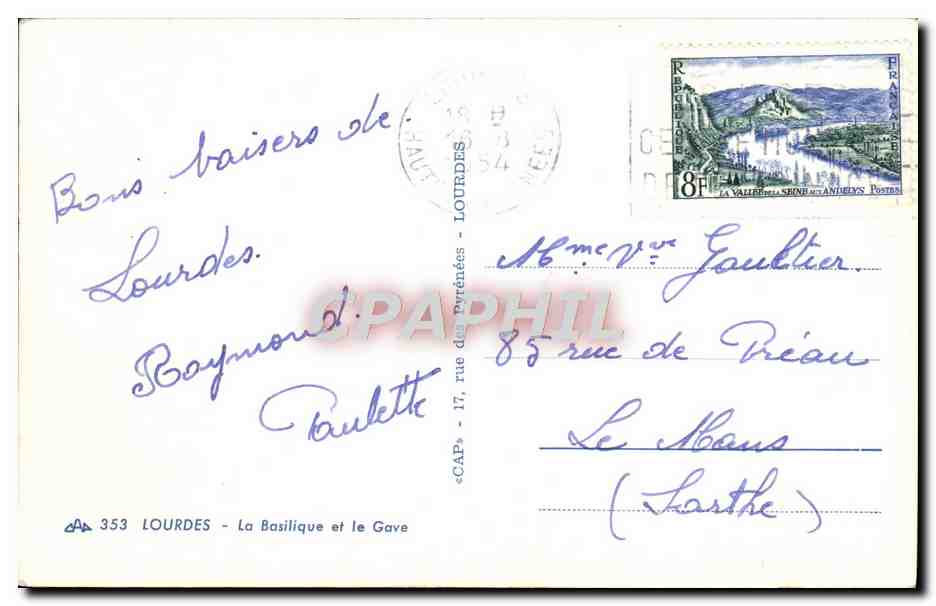 Bons baisers de.
Lourdes.
Raymond.
Paulette
353 LOURDES - La Basilique et le Gave
«CAP» - 17, rue des Pyrénées - LOURDES
CPAPHIL
REPUBLIQUE FRANCAISE
8F LA VALLEE DE LA SEINE AUX ANDELYS POSTES
18 H
54
HAUT NEES
Mme Vve Gaultier.
85 rue de Préau
Le Mans
(Sarthe)